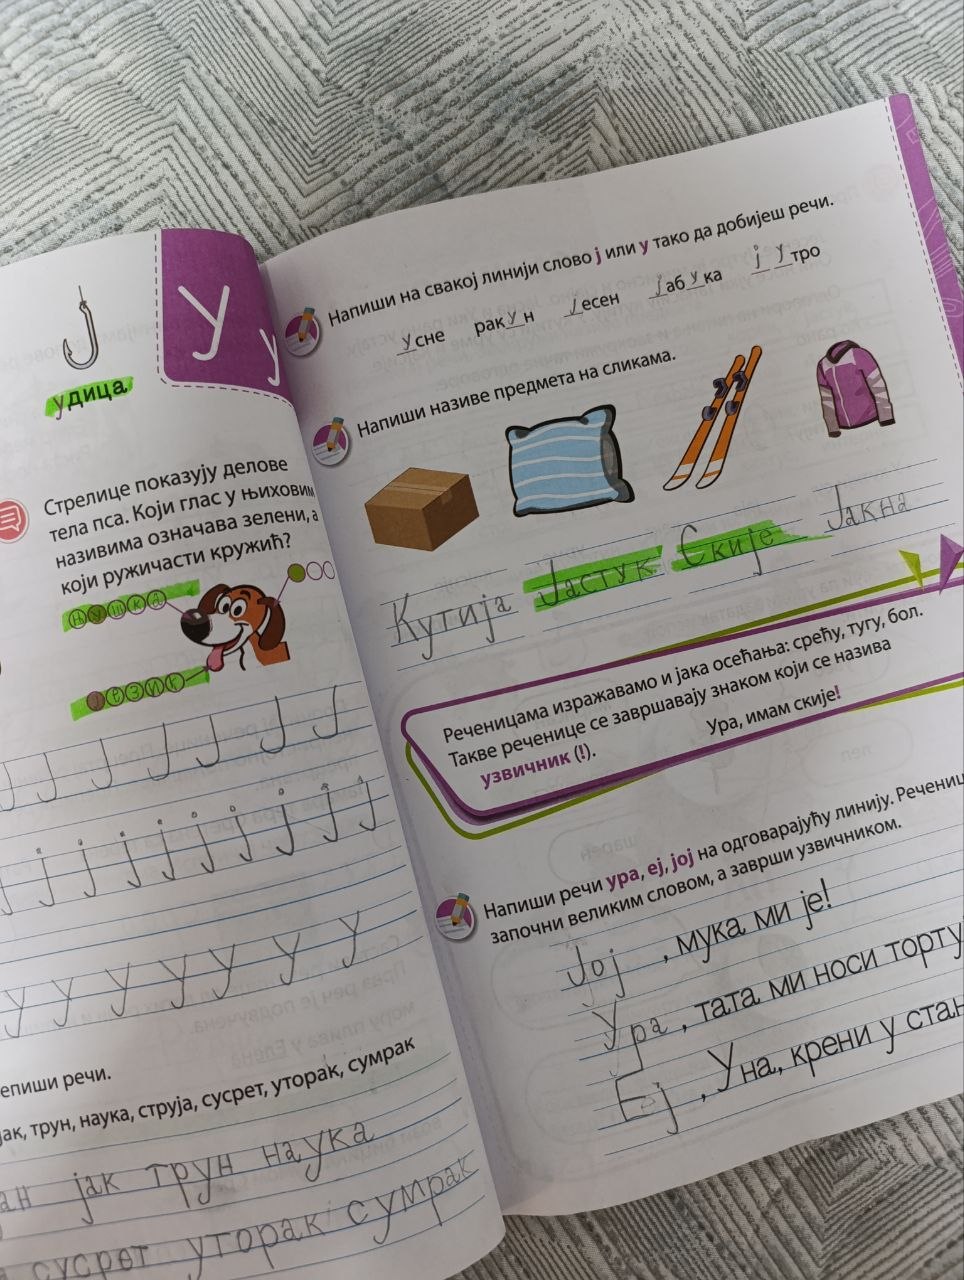 У у
удица
Стрелице показују делове
тела пса. Који глас у њиховим
називима означава зелени, а
који ружичасти кружић?
њушка
језик
Ј Ј Ј Ј Ј Ј
ј ј ј ј ј ј ј ј ј
у у у у у у у
епиши речи.
јак, трун, наука, струја, сусрет, уторак, сумрак
ан јак трун наука
сусрет уторак сумрак
Напиши на свакој линији слово ј или у тако да добијеш речи.
усне ракун јесен јабука јутро
Напиши називе предмета на сликама.
Кутија Јастук Скије Јакна
Реченицама изражавамо и јака осећања: срећу, тугу, бол.
Такве реченице се завршавају знаком који се назива
узвичник (!). Ура, имам скије!
Напиши речи ура, еј, јој на одговарајућу линију. Речениц
започни великим словом, а заврши узвичником.
Јој, мука ми је!
Ура, тата ми носи торту
Еј, Уна, крени у стан